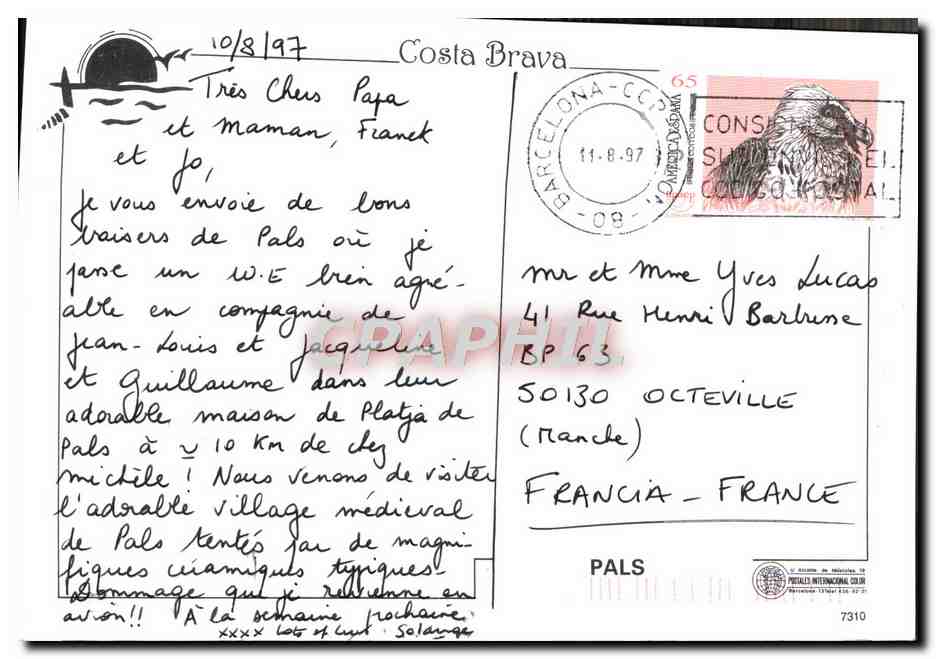 10/8/97
Costa Brava
Très Chers Papa
et Maman, Franck
et Jo,
Je vous envoie de bons
baisers de Pals où je
passe un W.E bien agré-
able en compagnie de
Jean-Louis et Jacqueline
et Guillaume dans leur
adorable maison de Platja de
Pals à ~ 10 Km de chez
Michèle ! Nous venons de visiter
l'adorable village médiéval
de Pals tentés par de magni-
fiques céramiques typiques-
Dommage que je revienne en
avion!! À la semaine prochaine.
xxxx Lots of Luv. Solange
65
AMERICA ESPAÑA
BARCELONA-CCP
11-8-97
80
CONSIGNE EN
SU
CODIGO POSTAL
Mr et Mme Yves Lucas
41 Rue Henri Barbusse
BP 63
50130 OCTEVILLE
(Manche)
FRANCIA - FRANCE
CPAPHIL
PALS
POSTALES INTERNACIONAL COLOR
7310